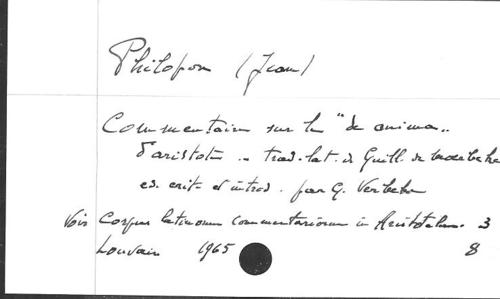 Philopon (Jean)
Commentaire sur le "de anima"
d'aristote - trad. lat. de Guill. de Moerbeke
ed. crit. et introd. par G. Verbeke
Voir Corpus latinum commentariorum in Aristotelem. 3
Louvain 1965 8